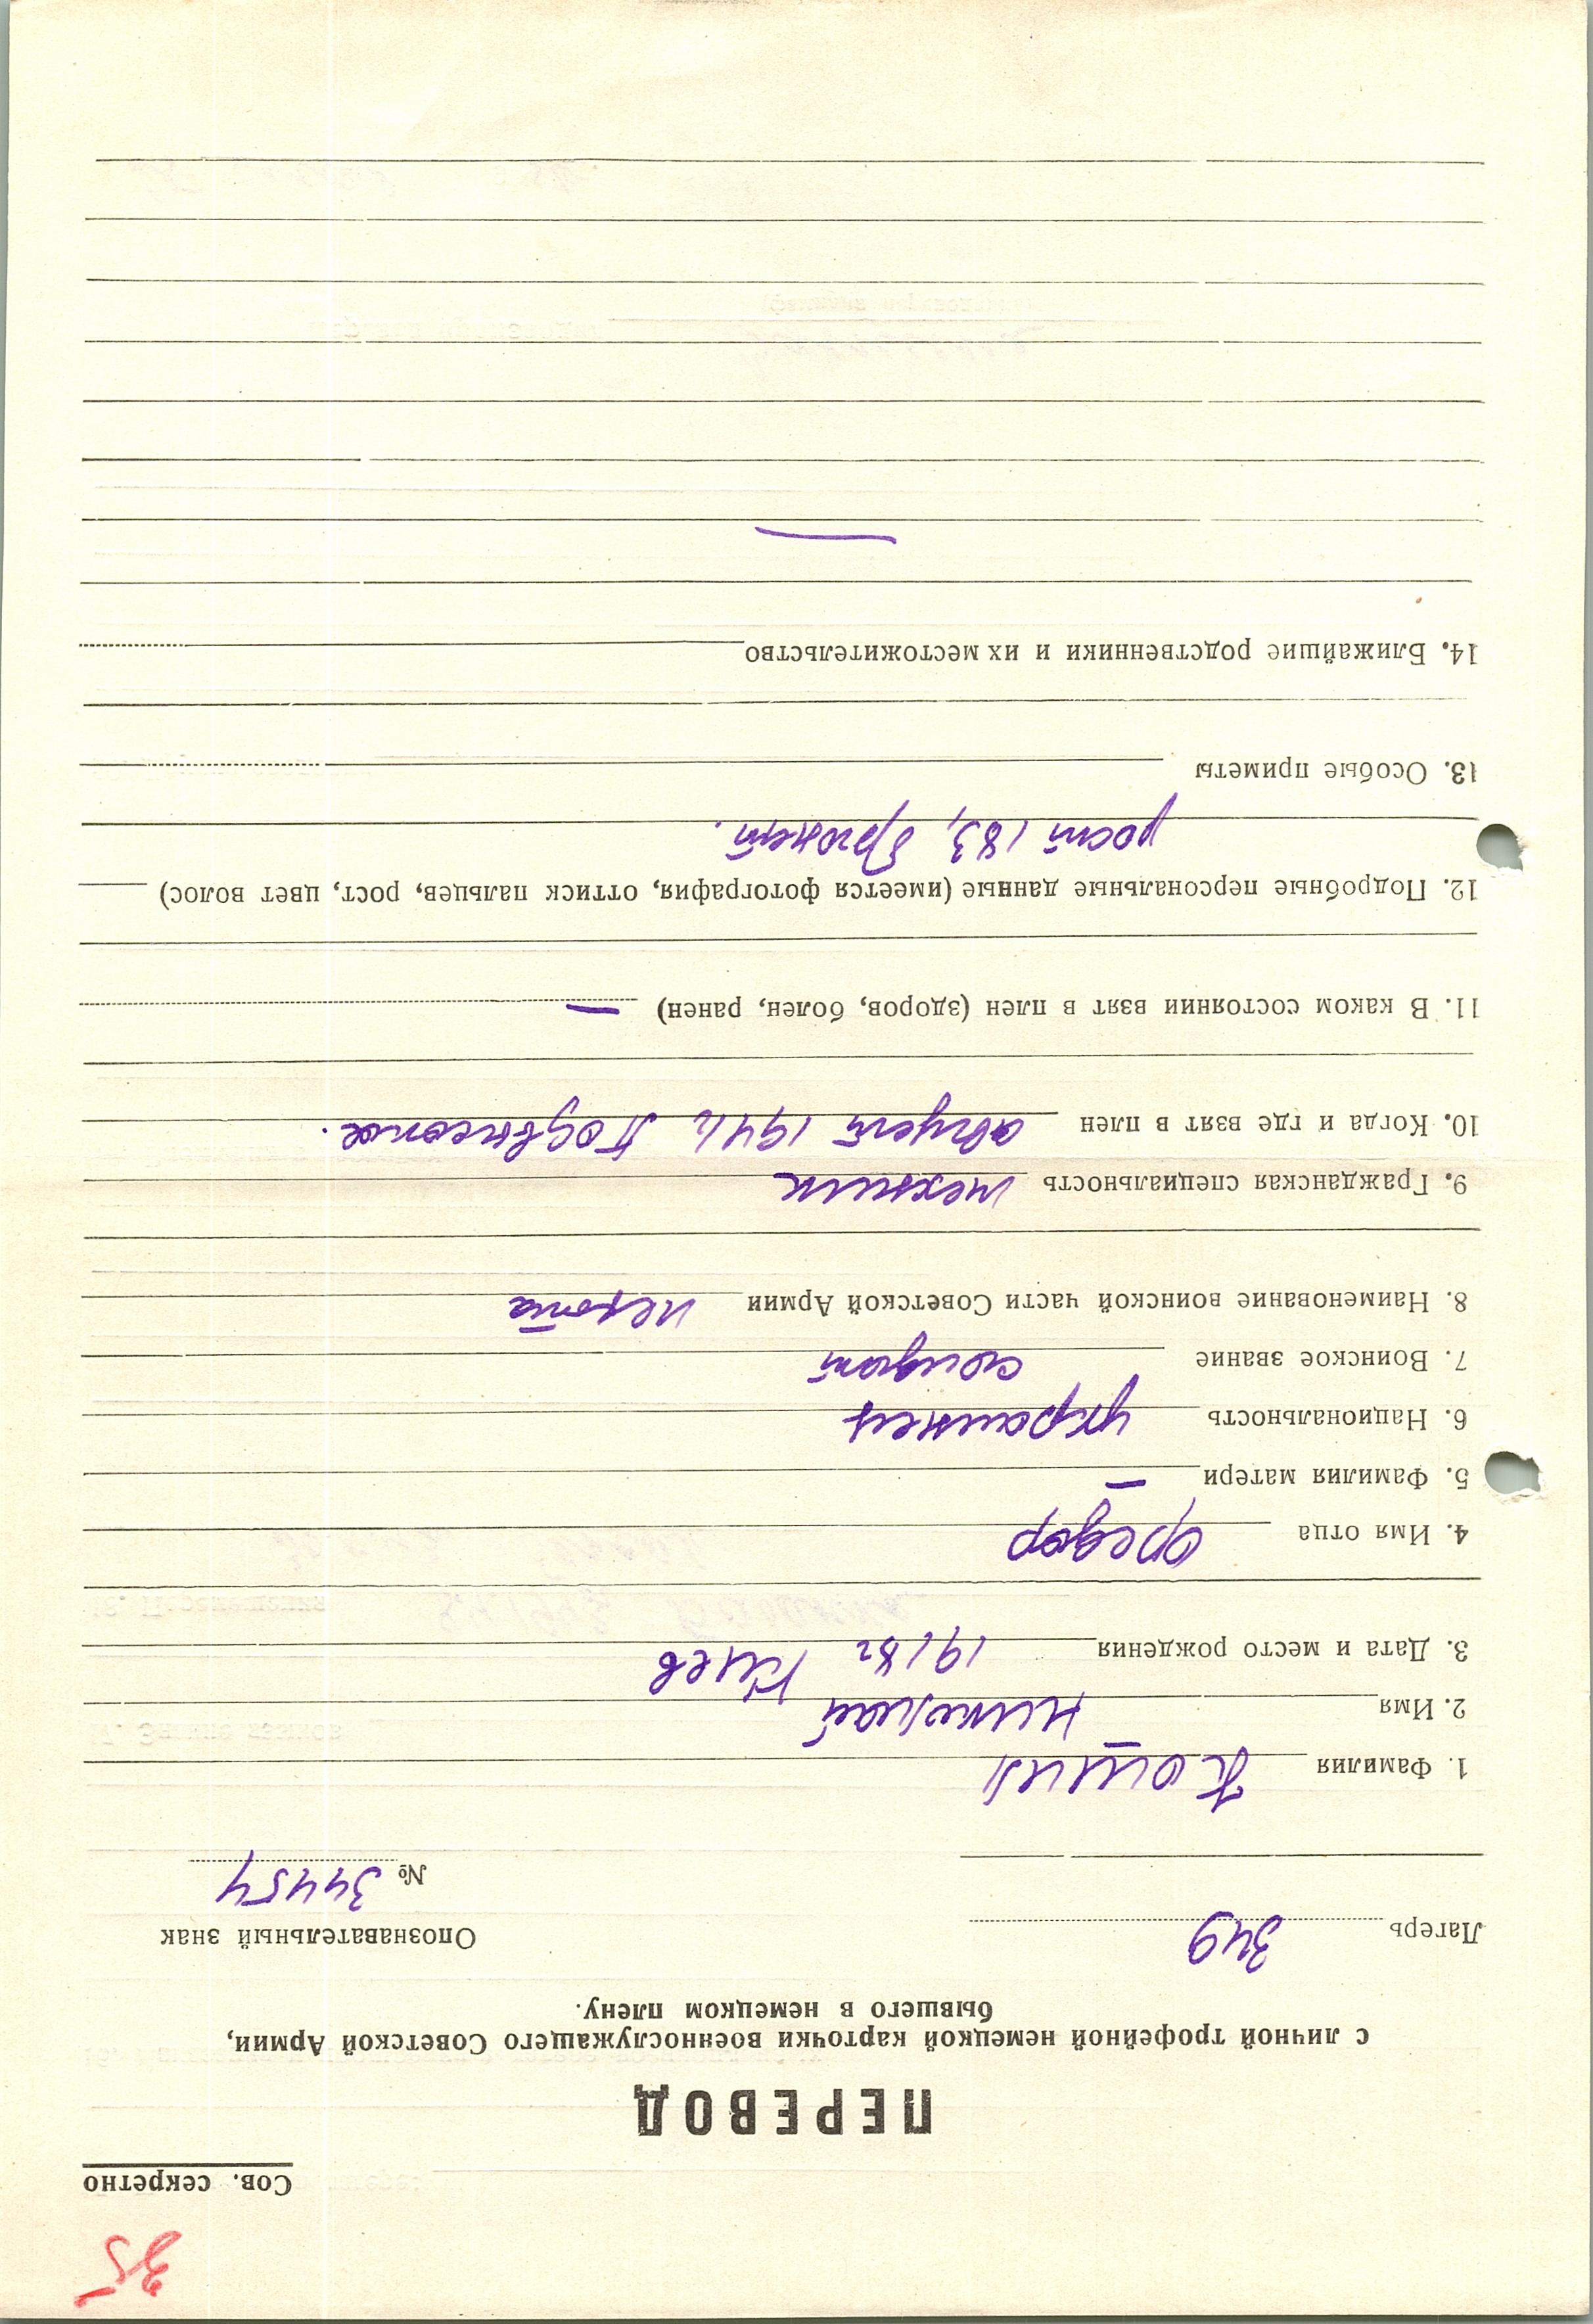 35
Сов. секретно
ПЕРЕВОД
с личной трофейной немецкой карточки военнослужащего Советской Армии,
бывшего в немецком плену.
Лагерь 349 Опознавательный знак
№ 34454
1. Фамилия Коцил
2. Имя Николай
3. Дата и место рождения 1918 г Киев
4. Имя отца Федор
5. Фамилия матери —
6. Национальность украинец
7. Воинское звание солдат
8. Наименование воинской части Советской Армии пехота
9. Гражданская специальность техник
10. Когда и где взят в плен август 1941 Подвысокое.
11. В каком состоянии взят в плен (здоров, болен, ранен) —
12. Подробные персональные данные (имеется фотография, оттиск пальцев, рост, цвет волос)
рост 183, брюнет.
13. Особые приметы
14. Ближайшие родственники и их местожительство
—